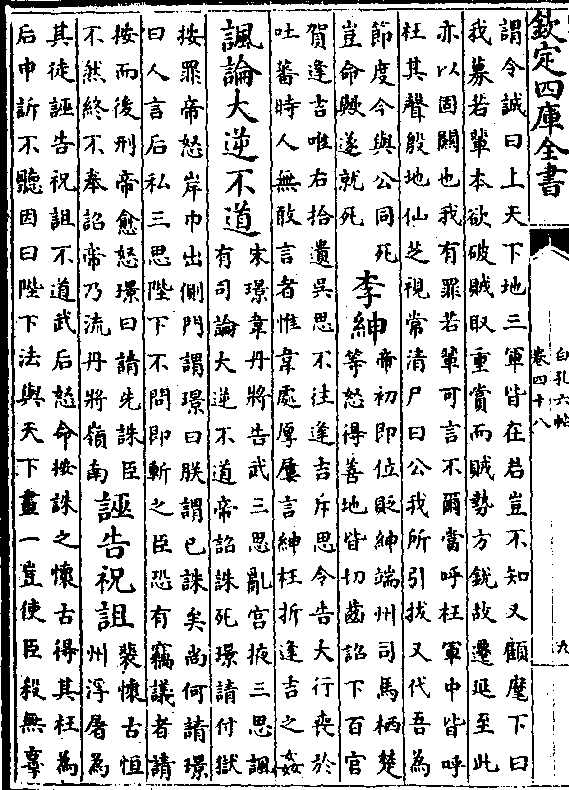 欽定四庫全書
白孔六帖
卷四十八
九
謂令誠曰上天下地三軍皆在君豈不知又顧麾下曰
我募若輩本欲破賊取重賞而賊勢方銳故遷延至此
亦以固關也我有罪若輩可言不爾當呼枉軍中皆呼
枉其聲殷地仙芝視常清尸曰公我所引拔又代吾為
節度今與公同死
豈命歟遂就死
李紳
帝初即位貶紳端州司馬栖楚
等怒得善地皆切齒詔下百官
賀逢吉唯右拾遺吳思不往逢吉斥思令告大行喪於
吐蕃時人無敢言者惟韋處厚屢言紳枉折逢吉之姦
諷論大逆不道
宋璟韋丹將告武三思亂宮掖三思諷
有司論大逆不道帝詔誅死璟請付獄
按罪帝怒岸巾出側門謂璟曰朕謂已誅矣尚何請璟
曰人言后私三思陛下不問即斬之臣恐有竊議者請
按而後刑帝愈怒璟曰請先誅臣
不然終不奉詔帝乃流丹將嶺南
誣告祝詛
裴懷古恒
州浮屠為
其徒誣告祝詛不道武后怒命按誅之懷古得其枉為
后申訴不聽因曰陛下法與天下畫一豈使臣殺無辜